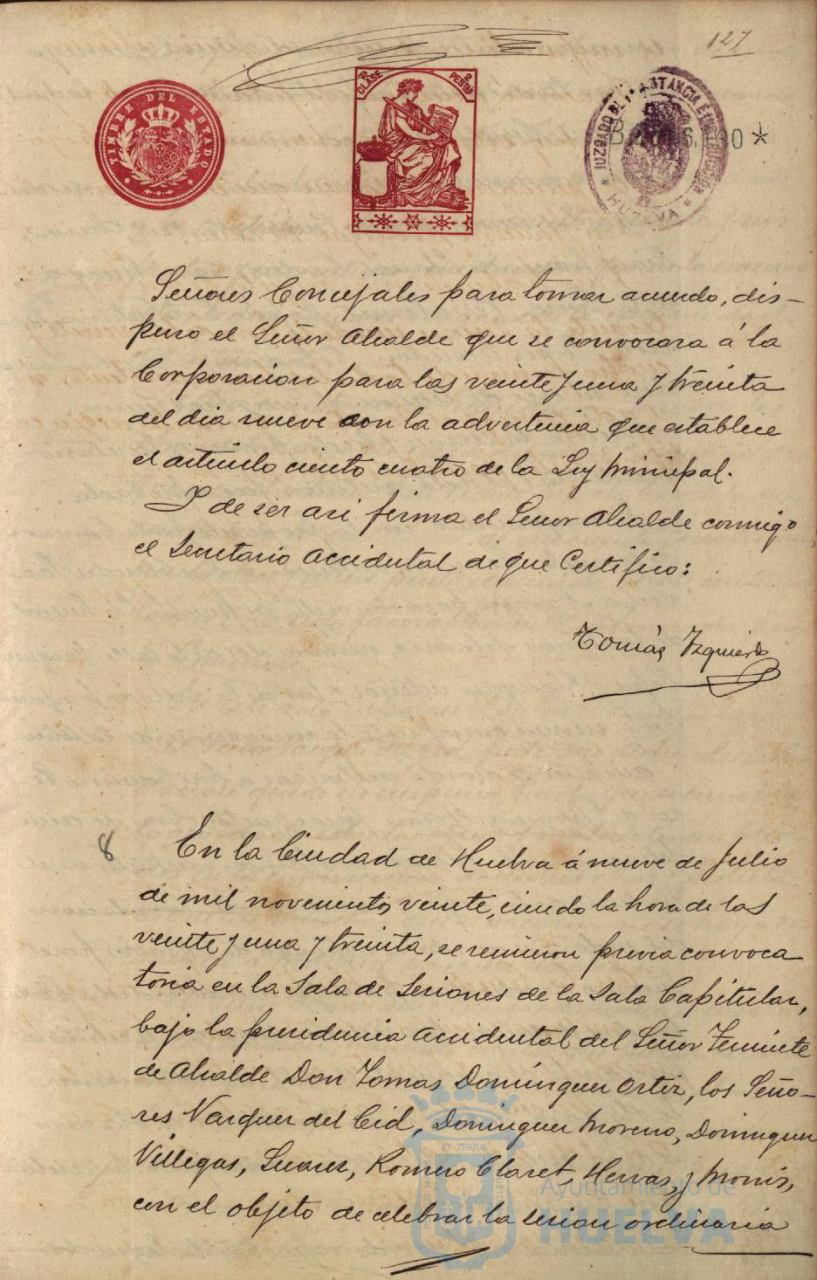 127
TIMBRE DEL ESTADO
CLASE 7ª 2 PESETAS
JUZGADO DE 1ª INSTANCIA É INSTRUCCION
* HUELVA *
Señores Concejales para tomar acuerdo, dis-
puso el Señor Alcalde que se convocara á la
Corporacion para las veinte y una y treinta
del dia nueve con la advertencia que establece
el articulo ciento cuatro de la Ley Municipal.
Y de ser asi firma el Señor Alcalde conmigo
el Secretario Accidental de que Certifico:
Tomás Izquierdo
8
En la Ciudad de Huelva á nueve de Julio
de mil novecientos veinte, siendo la hora de las
veinte y una y treinta, se reunieron previa convoca
toria en la Sala de Sesiones de la Sala Capitular,
bajo la presidencia accidental del Señor Teniente
de Alcalde Don Tomas Dominguez Ortiz, los Seño-
res Vazquez del Cid, Dominguez Moreno, Dominguez
Villegas, Suarez, Romero Claret, Hervas, y Monis,
con el objeto de celebrar la sesion ordinaria
Ayuntamiento de
HUELVA